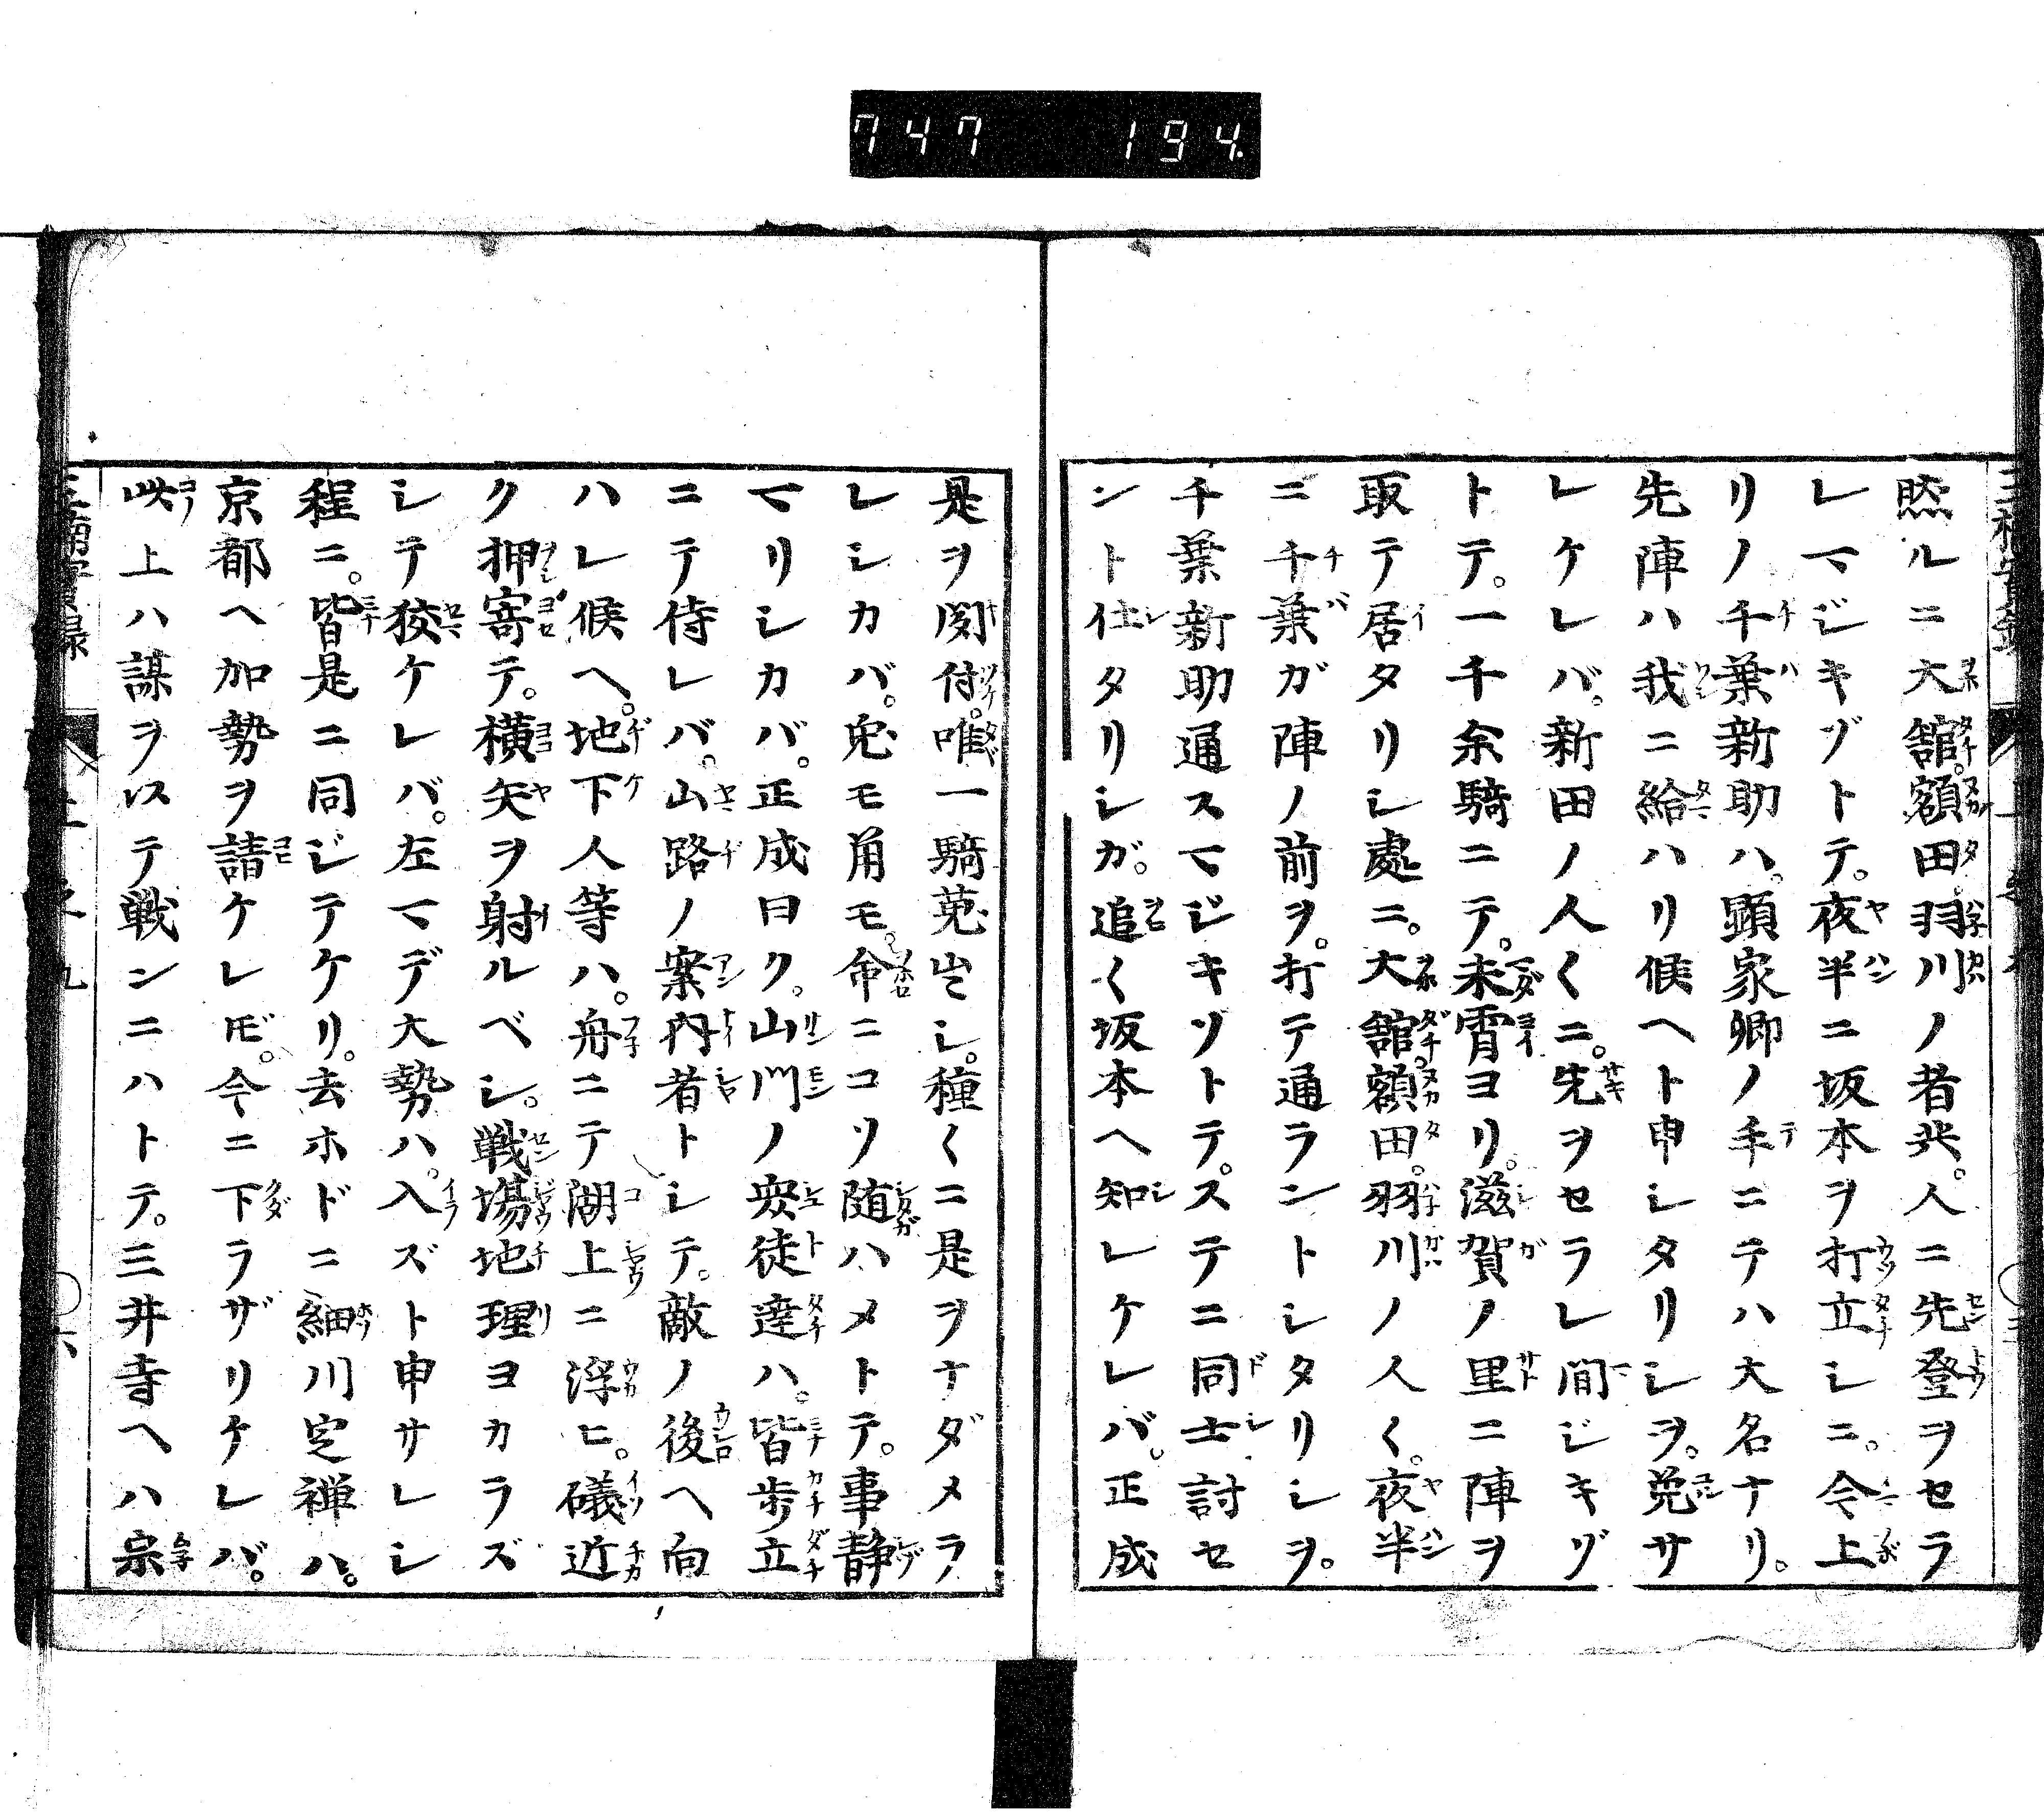 747 194.
然ルニ大舘。額田。羽川ノ者共。人ニ先登ヲセラ
レマジキゾトテ。夜半ニ坂本ヲ打立シニ。今上
リノ千葉新助ハ。顕家卿ノ手ニテハ大名ナリ。
先陣ハ我ニ給ハリ候ヘト申シタリシヲ。免サ
レケレバ。新田ノ人〱ニ。先ヲセラレ間ジキゾ
トテ。一千余騎ニテ。未宵ヨリ。滋賀ノ里ニ陣ヲ
取テ居タリシ處ニ。大舘。額田。羽川ノ人〱。夜半
ニ千葉ガ陣ノ前ヲ。打テ通ラントシタリシヲ。
千葉新助通スマジキゾトテ。ステニ同士討セ
ント仕タリシガ。追〱坂本ヘ知レケレバ。正成
是ヲ聞付。唯一騎莵出シ。種〱ニ是ヲナダメラ
レシカバ。兎モ角モ。命ニコソ随ハメトテ。事静
マリシカバ。正成曰ク。山門ノ衆徒達ハ。皆歩立
ニテ侍レバ。山路ノ案内者トシテ。敵ノ後ヘ向
ハレ候ヘ。地下人等ハ。舟ニテ湖上ニ浮ヒ。礒近
ク押寄テ。横矢ヲ射ルベシ。戦場地理ヨカラズ
シテ狡ケレバ。左マデ大勢ハ。入ズト申サレシ
程ニ。皆是ニ同ジテケリ。去ホドニ細川定禅ハ。
京都ヘ加勢ヲ請ケレ𪜈。今ニ下ラザリケレバ。
此上ハ謀ヲ以テ戦ンニハトテ。三井寺ヘハ宗